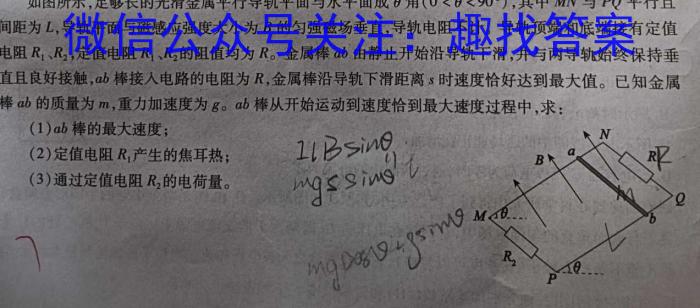 如图所示,足够长的光滑金属平行导轨平面与水平面成θ角(0<θ<90°),其中MN与PQ平行且
间距为L,导轨平面与磁感应强度大小为 的匀强磁场垂直,导轨电阻 导轨顶端 底端 有定值
微信公众号关注：趣找答案
电阻R₁、R₂,定值电阻R₁、R₂的阻值均为R。金属棒ab由静止开始沿导轨下滑,并与两导轨始终保持垂
直且良好接触,ab棒接入电路的电阻为R,金属棒沿导轨下滑距离s时速度恰好达到最大值。已知金属
棒ab的质量为m,重力加速度为g。ab棒从开始运动到速度恰到最大速度过程中,求:
(1)ab棒的最大速度;
(2)定值电阻R₁产生的焦耳热;
(3)通过定值电阻R₂的电荷量。
ILBsinθ
mgssinθ
mgcosθ+gsinθ
N
a
B
R
R
m
Q
M
θ
b
L
R₂
θ
P